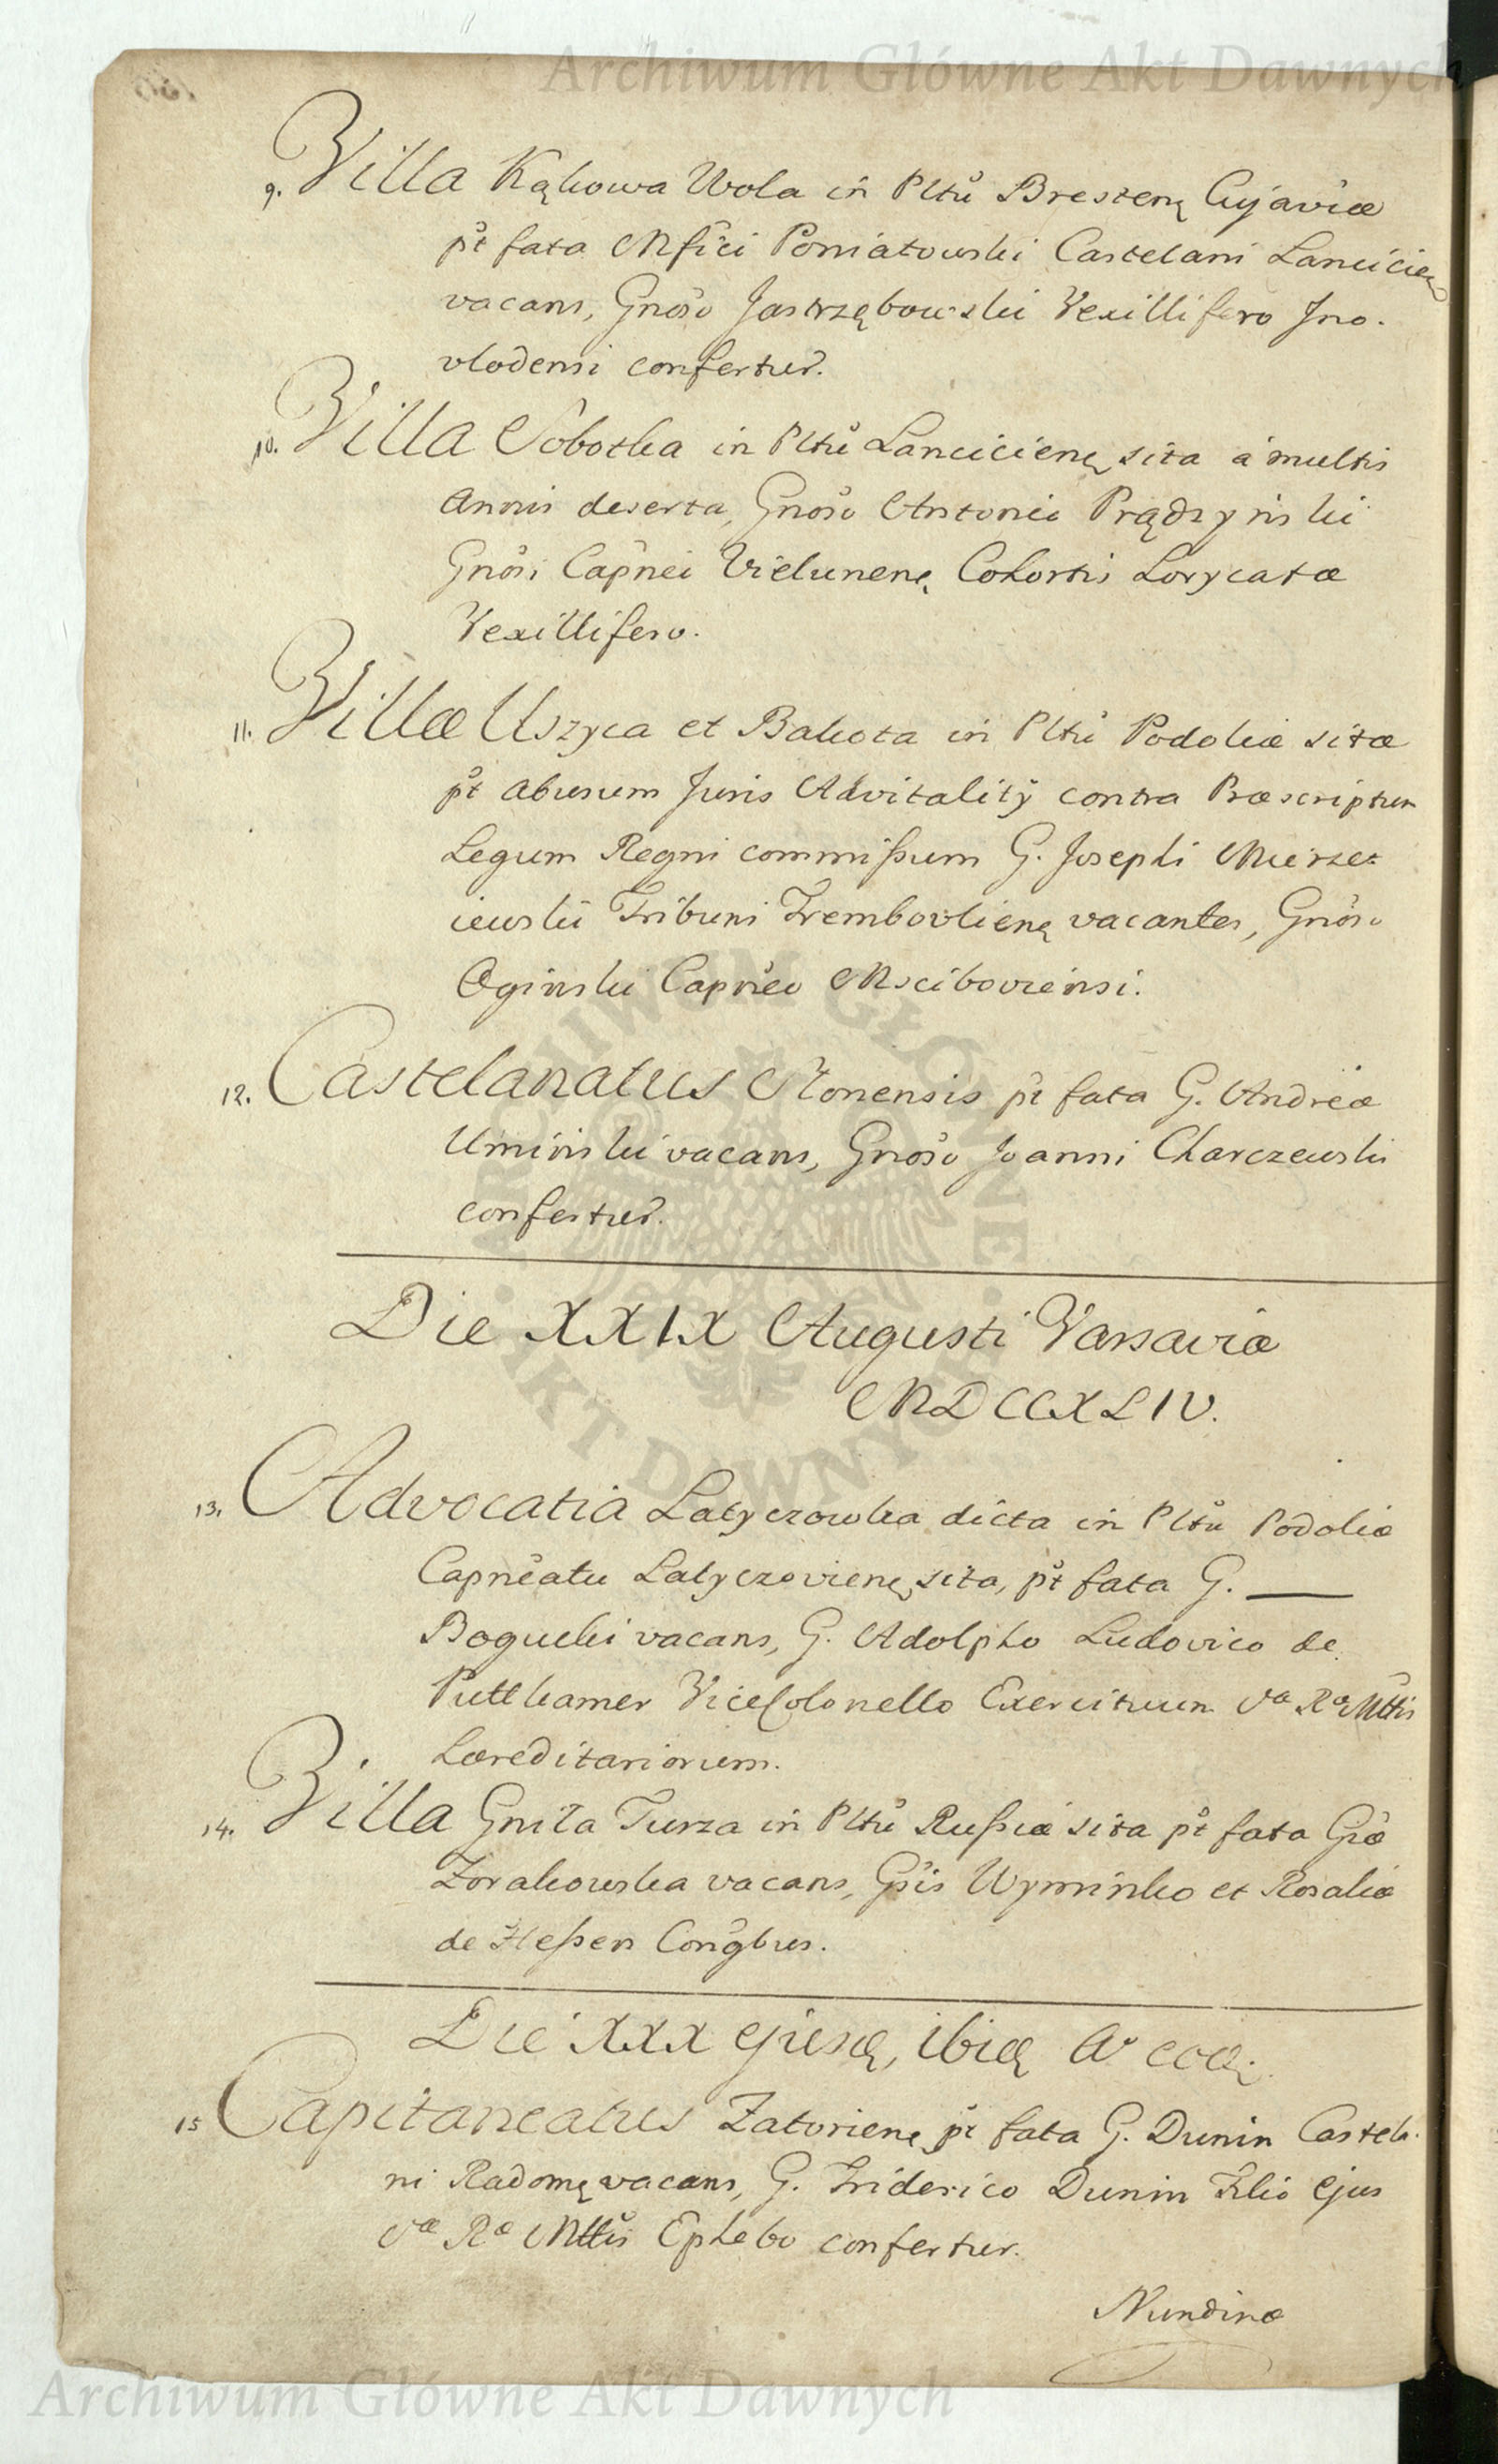 Archiwum Główne Akt Dawnych
9. Villa Kąkowa Wola in Pltũ Bresteną Cujaviæ
p̃t fata Mfici Poniatowski Castelani Lancicien
vacans, Gnõso Jastrzębowski Vexillifero Ino.
vlodensi confertur.
10. Villa Sobotka in Pltũ Lancicienę sita a multis
Annis deserta, Gnõso Antonio Prądzyński
Gnõsi Capnei Vielunenę Cohortis Lorycatæ
Vexillifero.
11. Villæ Uszyca et Bakota in Pltũ Podoliæ sitæ
p̃t abusum Juris Advitalitÿ contra Præscriptum
Legum Regni commißum G. Josephi Mierze=
iewski Tribuni Trembovlienę vacantes, Gnõso
Oginski Capneo Msciboviensi.
12. Castelanatus Slonensis p̃t fata G. Andreæ
Uminski vacans, Gnõso Joanni Charczewski
confertur.
Die XXIX Augusti Varsaviæ
MDCCXLIV.
13. Advocatia Latyczowska dicta in Pltũ Podoliæ
Capneatu Latyczovienę sita, p̃t fata G. ___
Bogucki vacans, G. Adolpho Ludovico de
Puttkamer ViceColonello Exercituum Sæ Ræ Mttis
hæreditariorum.
14. Villa Gniła Turza in Pltũ Rußiæ sita p̃t fata Gsæ
Zorakowska vacans, Gsis Wyminko et Rosaliæ
de Heßen Conĝbus.
Die XXX ejusdę, ibidę Aº eodę.
15 Capitaneatus Zatorienę p̃t fata G. Dunin Castela.
ni Radomę vacans, G. Friderico Dunin Filio ejus
Sæ Ræ Mttis Ephebo confertur.
Nundinæ
Archiwum Główne Akt Dawnych